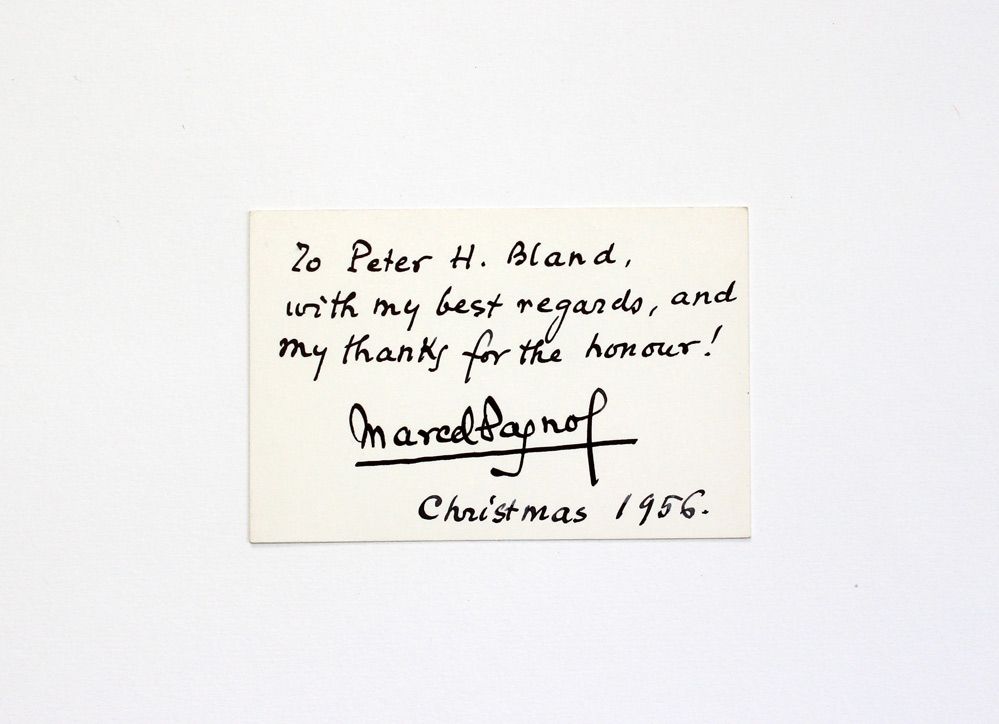 To Peter H. Bland,
with my best regards, and
my thanks for the honour!
Marcel Pagnol
Christmas 1956.